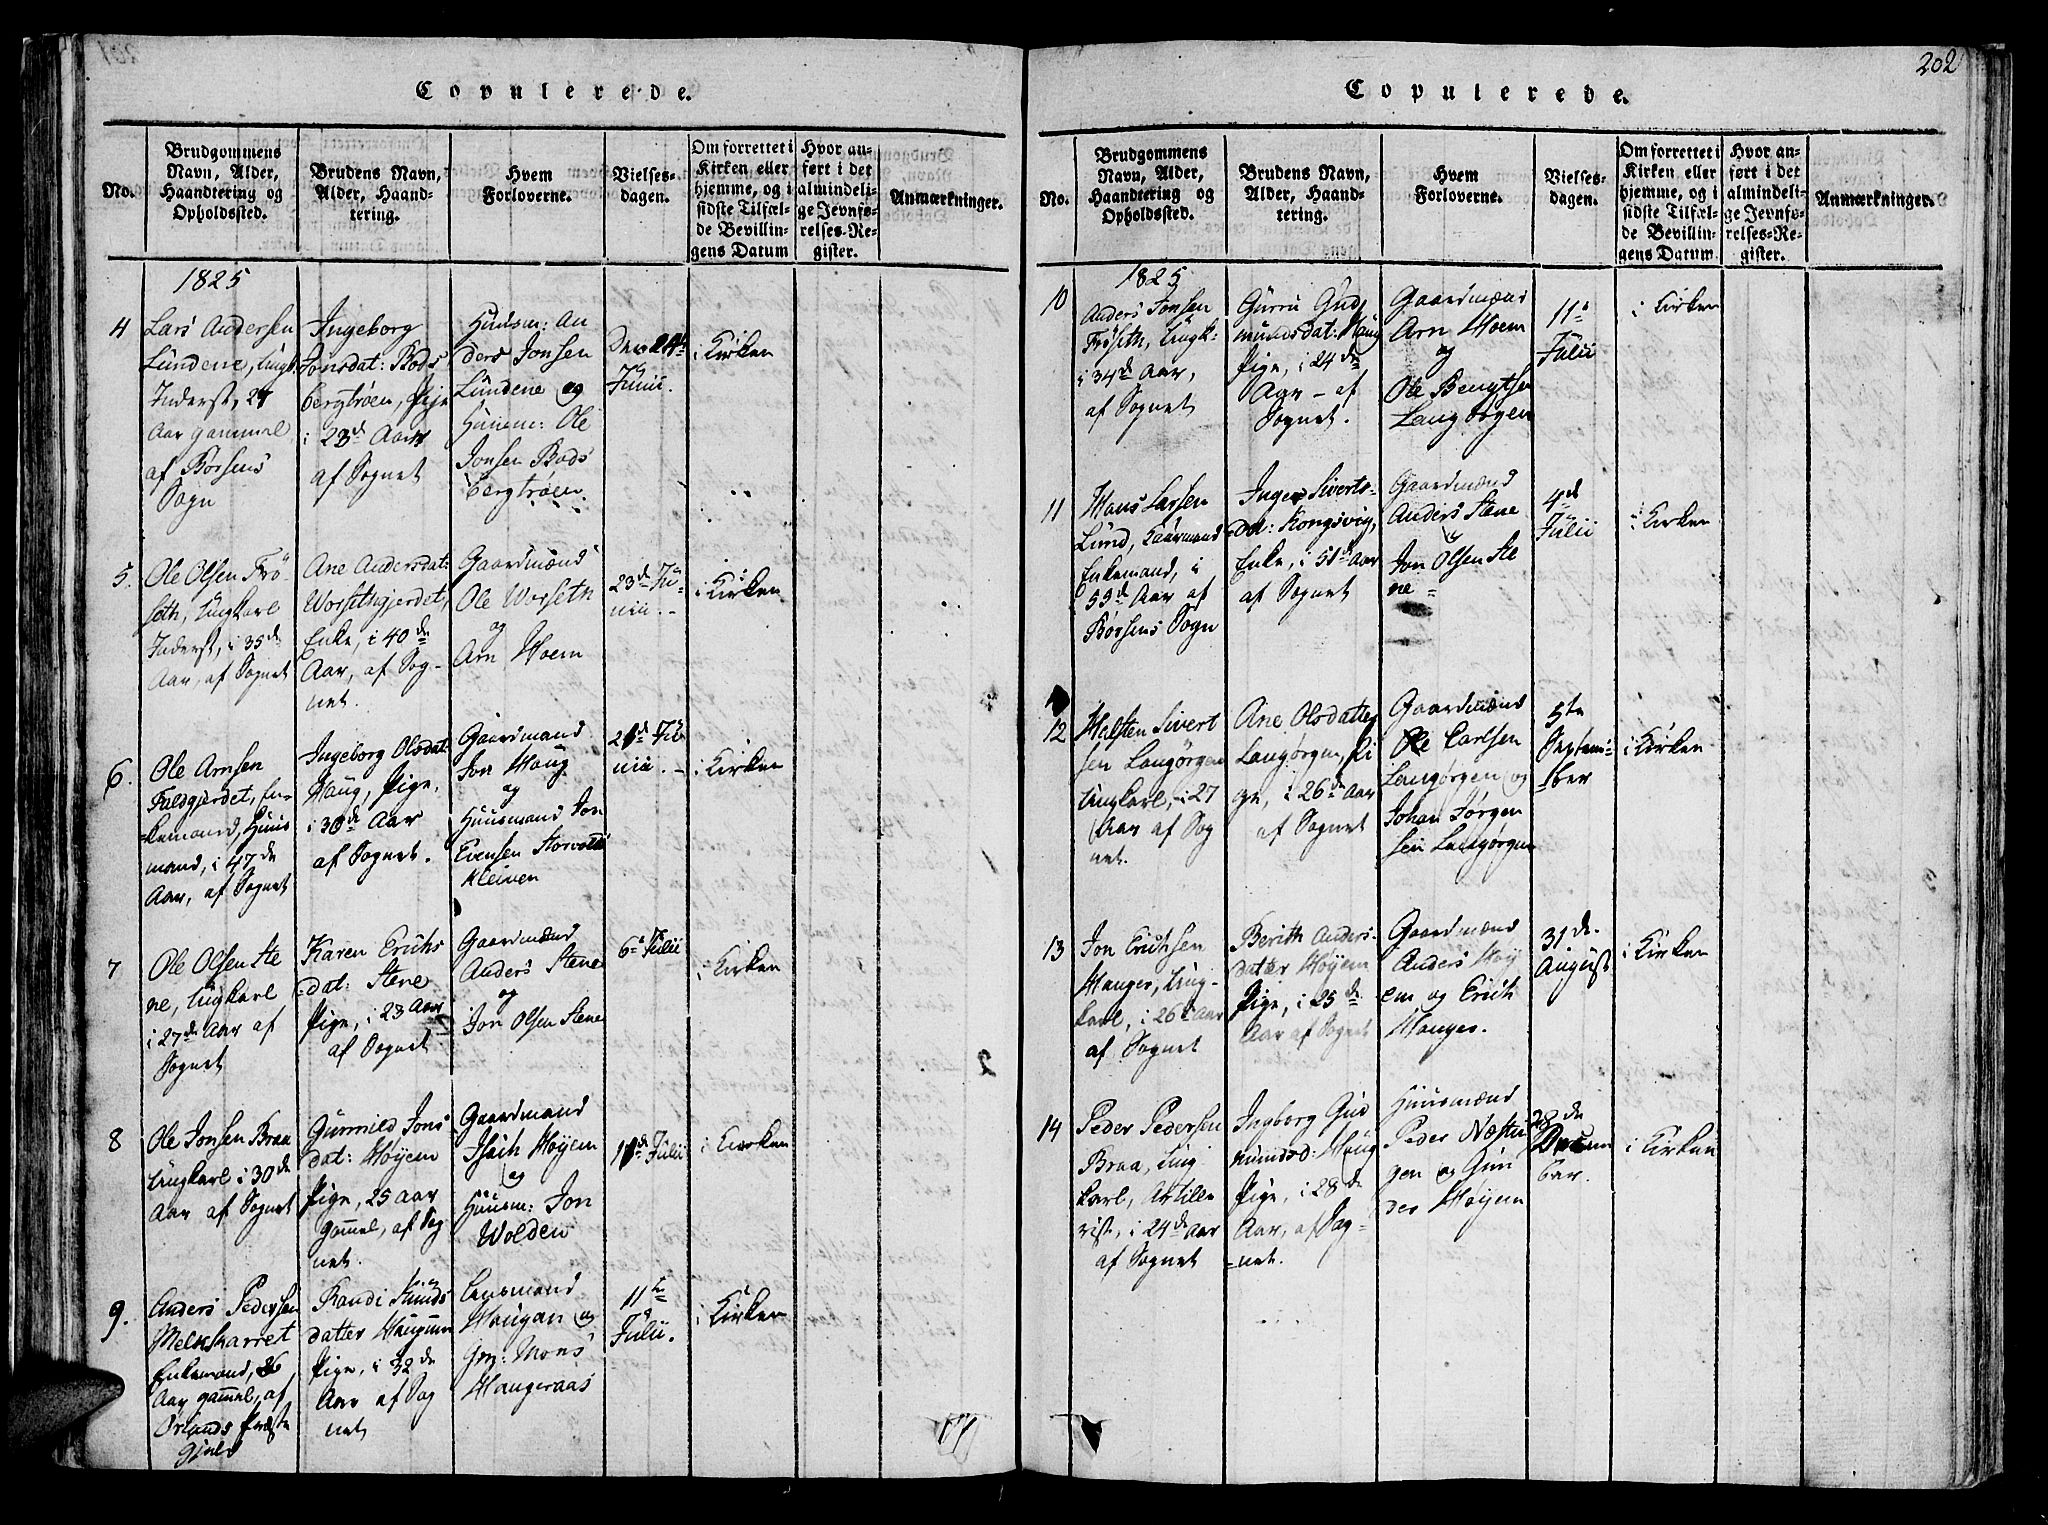 Copulerede.
No.
Brudgommens
Navn, Alder,
Haandtering og
Opholdssted.
Brudens Navn,
Alder, Haand-
tering.
Hvem
Forloverne.
Vielses-
dagen.
Om forrettet i
Kirken eller
hjemme, og i
sidste Tilfæl-
de Bevillin-
gens Datum
Hvor an-
ført i det
almindeli-
ge Jevnfø-
relses-Re-
gister.
Anmærkninger.
1825
4
Lars Andersen
Lundene, Ungk.
Inderst, 27
Aar gammel
af Børsens
Sogn
Ingeborg
Jonsdat: Bods
bergtrøen, Pige
i 23d Aar
af Sognet
Huusm: An
ders Jonsen
Lundene og
Huusm: Ole
Jonsen Bods
bergtrøen.
Den
Junii.
i Kirken
5.
Ole Olsen Frö-
seth, Ungkarl
Inderst, i 35de
Aar, af Sognet
Ane Andersdat:
Worsethgjerdet,
Enke, i 40de
Aar, af Sog-
net.
Gaardmænd
Ole Worseth
og
Arn Hoem
23d Ju-
nii.
i Kirken
6.
Ole Arnsen
Faldgjerdet, En-
kemand, Huus
mand, i 47de
Aar, af Sognet
Ingeborg Olsdat:
Haug, Pige,
i 30de Aar
af Sognet.
Gaardmand
Jon Haug
og
Huusmand Jon
Evensen Storvold
Kleiven
Ju
nii.
i Kirken
7
Ole Olsen Ste
ne, Ungkarl
i 27de Aar af
Sognet
Karen Erichs
dat: Stene
Pige, i 23 Aar
af Sognet
Gaardmænd
Anders Stene
og
Jon Olsen Stene
6te Julii
i Kirken
8
Ole Jonsen Braa
Ungkarl i 30de
Aar af Sognet
Gunnild Jons
dat: Høyem
Pige, 25 Aar
gamel, af Sog
net.
Gaardmand
Isach Høyem
og
Huusm: Jon
Wolden
Julii
i Kirken
9.
Anders Pedersen
Melkskarret
Enkemand,
Aar gamel, af
Ørlands Præste
gjeld
Randi Knuds
datter Haugum
Pige, i 32de
Aar af Sog
net
Lensmand
Haugan og
Mons
Haugeraas
11te
Julii.
i Kirken
202
Copulerede.
No.
Brudgommens
Navn, Alder,
Haandtering og
Opholdssted.
Brudens Navn,
Alder, Haand-
tering.
Hvem
Forloverne.
Vielses-
dagen.
Om forrettet i
Kirken eller
hjemme, og i
sidste Tilfæl-
de Bevillin-
gens Datum.
Hvor an-
ført i det
almindeli-
ge Jevnfø-
relses-Re-
gister.
Anmærkninger.
1825
10
Anders Jonsen
Frøseth, Ungk-
i 34de Aar,
af Sognet
Gurru Gud
mundsdat: Haug
Pige, i 24de
Aar - af
Sognet.
Gaardmænd
Arn Hoem
og
Ole Bengtsen
Langørgen
11te
Julii
i Kirken
11
Hans Larsen
Lund, Gaarmand
Enkemand, i
59de Aar af
Børsens Sogn
Inger Siverts-
dat: Kongsvig,
Enke, i 51de Aar
af Sognet
Gaardmænd
Anders Stene
og
Jon Olsen Ste
ne
4de
Julii
i Kirken
12
Halsten Sivert
sen Langørgen
Ungkarl, i 27
Aar af Sog
net.
Ane Olsdatter
Langørgen, Pi
ge, i 26de Aar
af Sognet
Gaardmænd
Ole Carlsen
Langørgen og
Johan Jørgen
sen Langørgen
5te
Septem-
ber
i Kirken
13
Jon Erichsen
Hanger, Ung-
karl, i 26de Aar
af Sognet
Berith Anders-
datter Høyem
Pige, i 25de
Aar af Sognet
Gaardmænd
Anders Høy
em og Erich
Hanger.
31de
August
i Kirken
14
Peder Pedersen
Braa, Ung
karl, Artille
rist, i 24de Aar
af Sognet
Ingborg Gud
mundsd: Haug
Pige, i 28de
Aar, af Sog-
net.
Huusmænd
Peder Næstu
gen og Gun
der Høyem
28de
Decem
ber.
i Kirken